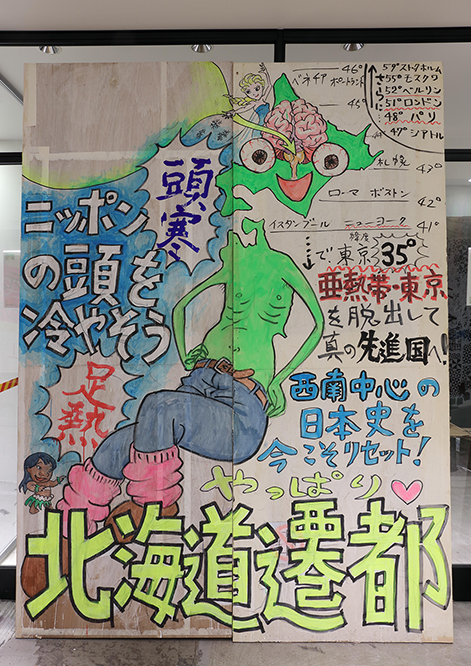 46°
ベネチア ポートランド
45°
さらに
59°ストックホルム
55°モスクワ
52°ベルリン
51°ロンドン
48°パリ
47°シアトル
札幌 43°
ローマ ボストン 42°
イスタンブール ニューヨーク 41°
緯度
で、東京 35°
亜熱帯・東京
を脱出して
真の先進国へ!
頭寒
ニッポン
の頭を
冷やそう
足熱
西南中心の
日本史を
今こそリセット!
やっぱり
北海道遷都